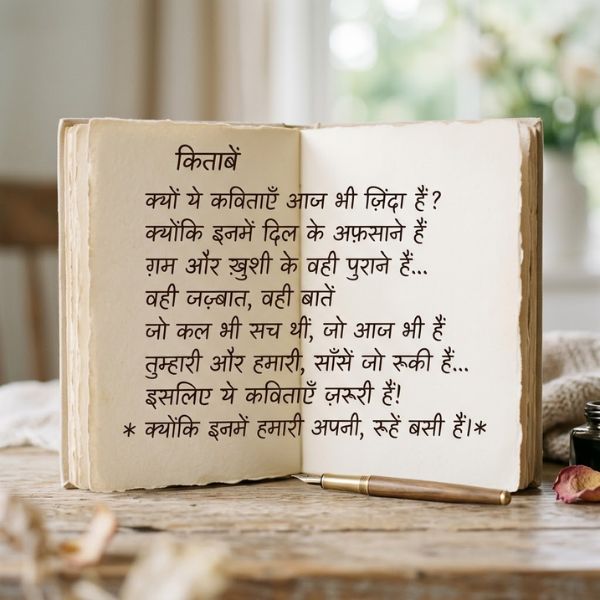 किताबें
क्यों ये कविताएँ आज भी ज़िंदा हैं?
क्योंकि इनमें दिल के अफ़साने हैं
ग़म और ख़ुशी के वही पुराने हैं...
वही जज़्बात, वही बातें
जो कल भी सच थीं, जो आज भी हैं
तुम्हारी और हमारी, साँसें जो रूकी हैं...
इसलिए ये कविताएँ ज़रूरी हैं!
* क्योंकि इनमें हमारी अपनी, रूहें बसी हैं।*